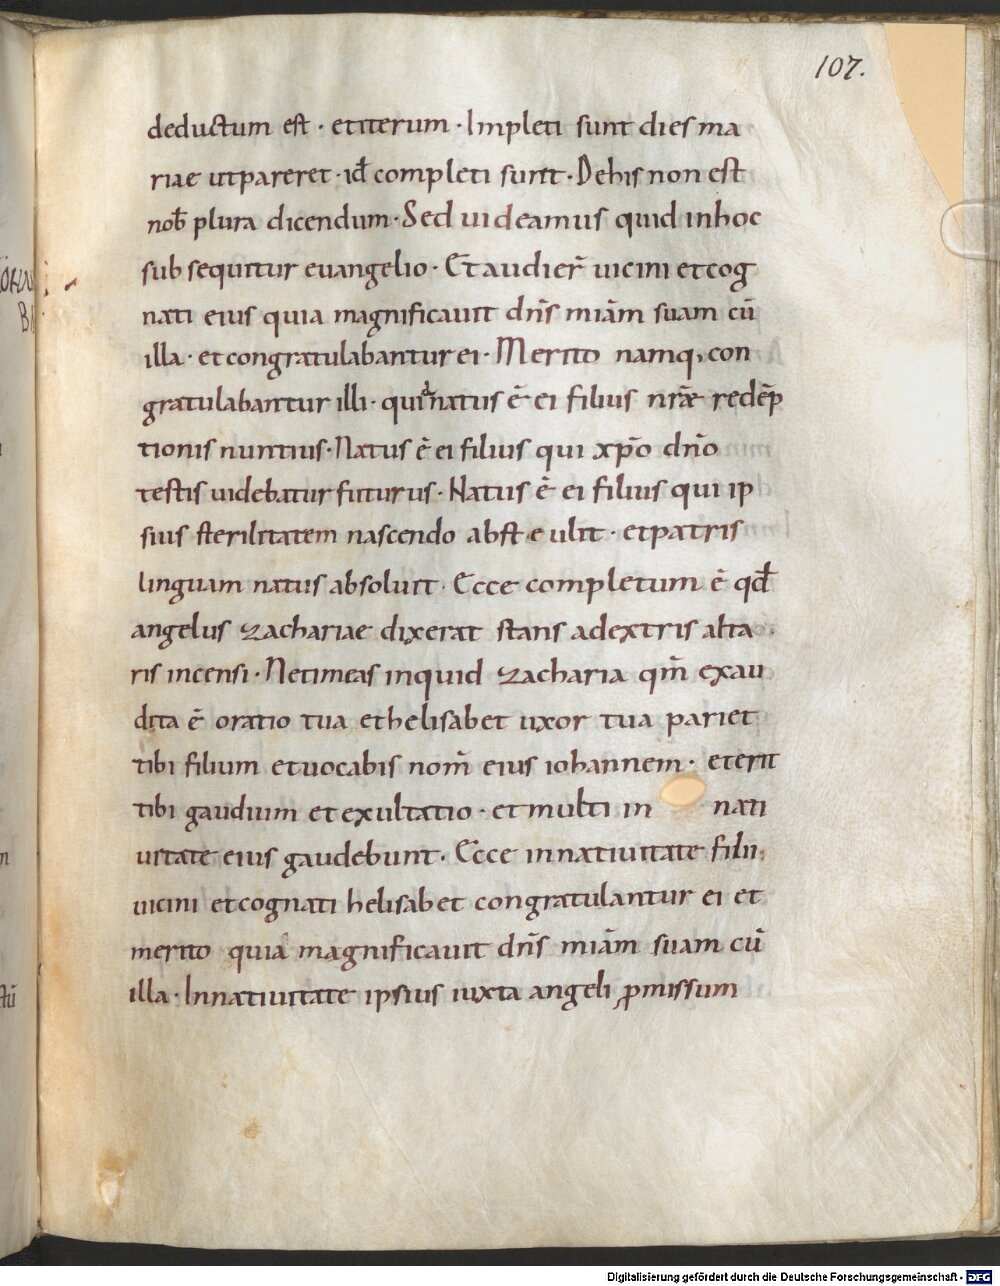 107.
deductum est · et iterum · Impleti sunt dies ma
riae ut pareret · id̄ completi sunt · De his non est
nob̄ plura dicendum · Sed uideamus quid in hoc
sub sequitur euangelio · Et audier̄ uicini et cog
nati eius quia magnificauit dn̄s miām suam cū
illa · et congratulabantur ei · Merito namq, con
gratulabantur illi · quia natus ē ei filius nr̄ae redēp
tionis nuntius · Natus ē ei filius qui xp̄o dn̄o
testis uidebatur futurus · Natus ē ei filius qui ip
sius sterilitatem nascendo abst e ulit · et patris
linguam natus absoluit · Ecce completum ē qd̄
angelus zachariae dixerat stans ad extris alta
ris incensi · Ne timeas inquid zacharia qm̄ exau
dita ē oratio tua et helisabet uxor tua pariet
tibi filium et uocabis nom̄ eius iohannem · et erit
tibi gaudium et exultatio · et multi in nati
uitate eius gaudebunt · Ecce in natiuitate filii
uicini et cognati helisabet congratulantur ei et
merito quia magnificauit dn̄s miām suam cū
illa · In natiuitate ipsius iuxta angeli ꝓmissum
Digitalisierung gefördert durch die Deutsche Forschungsgemeinschaft - DFG